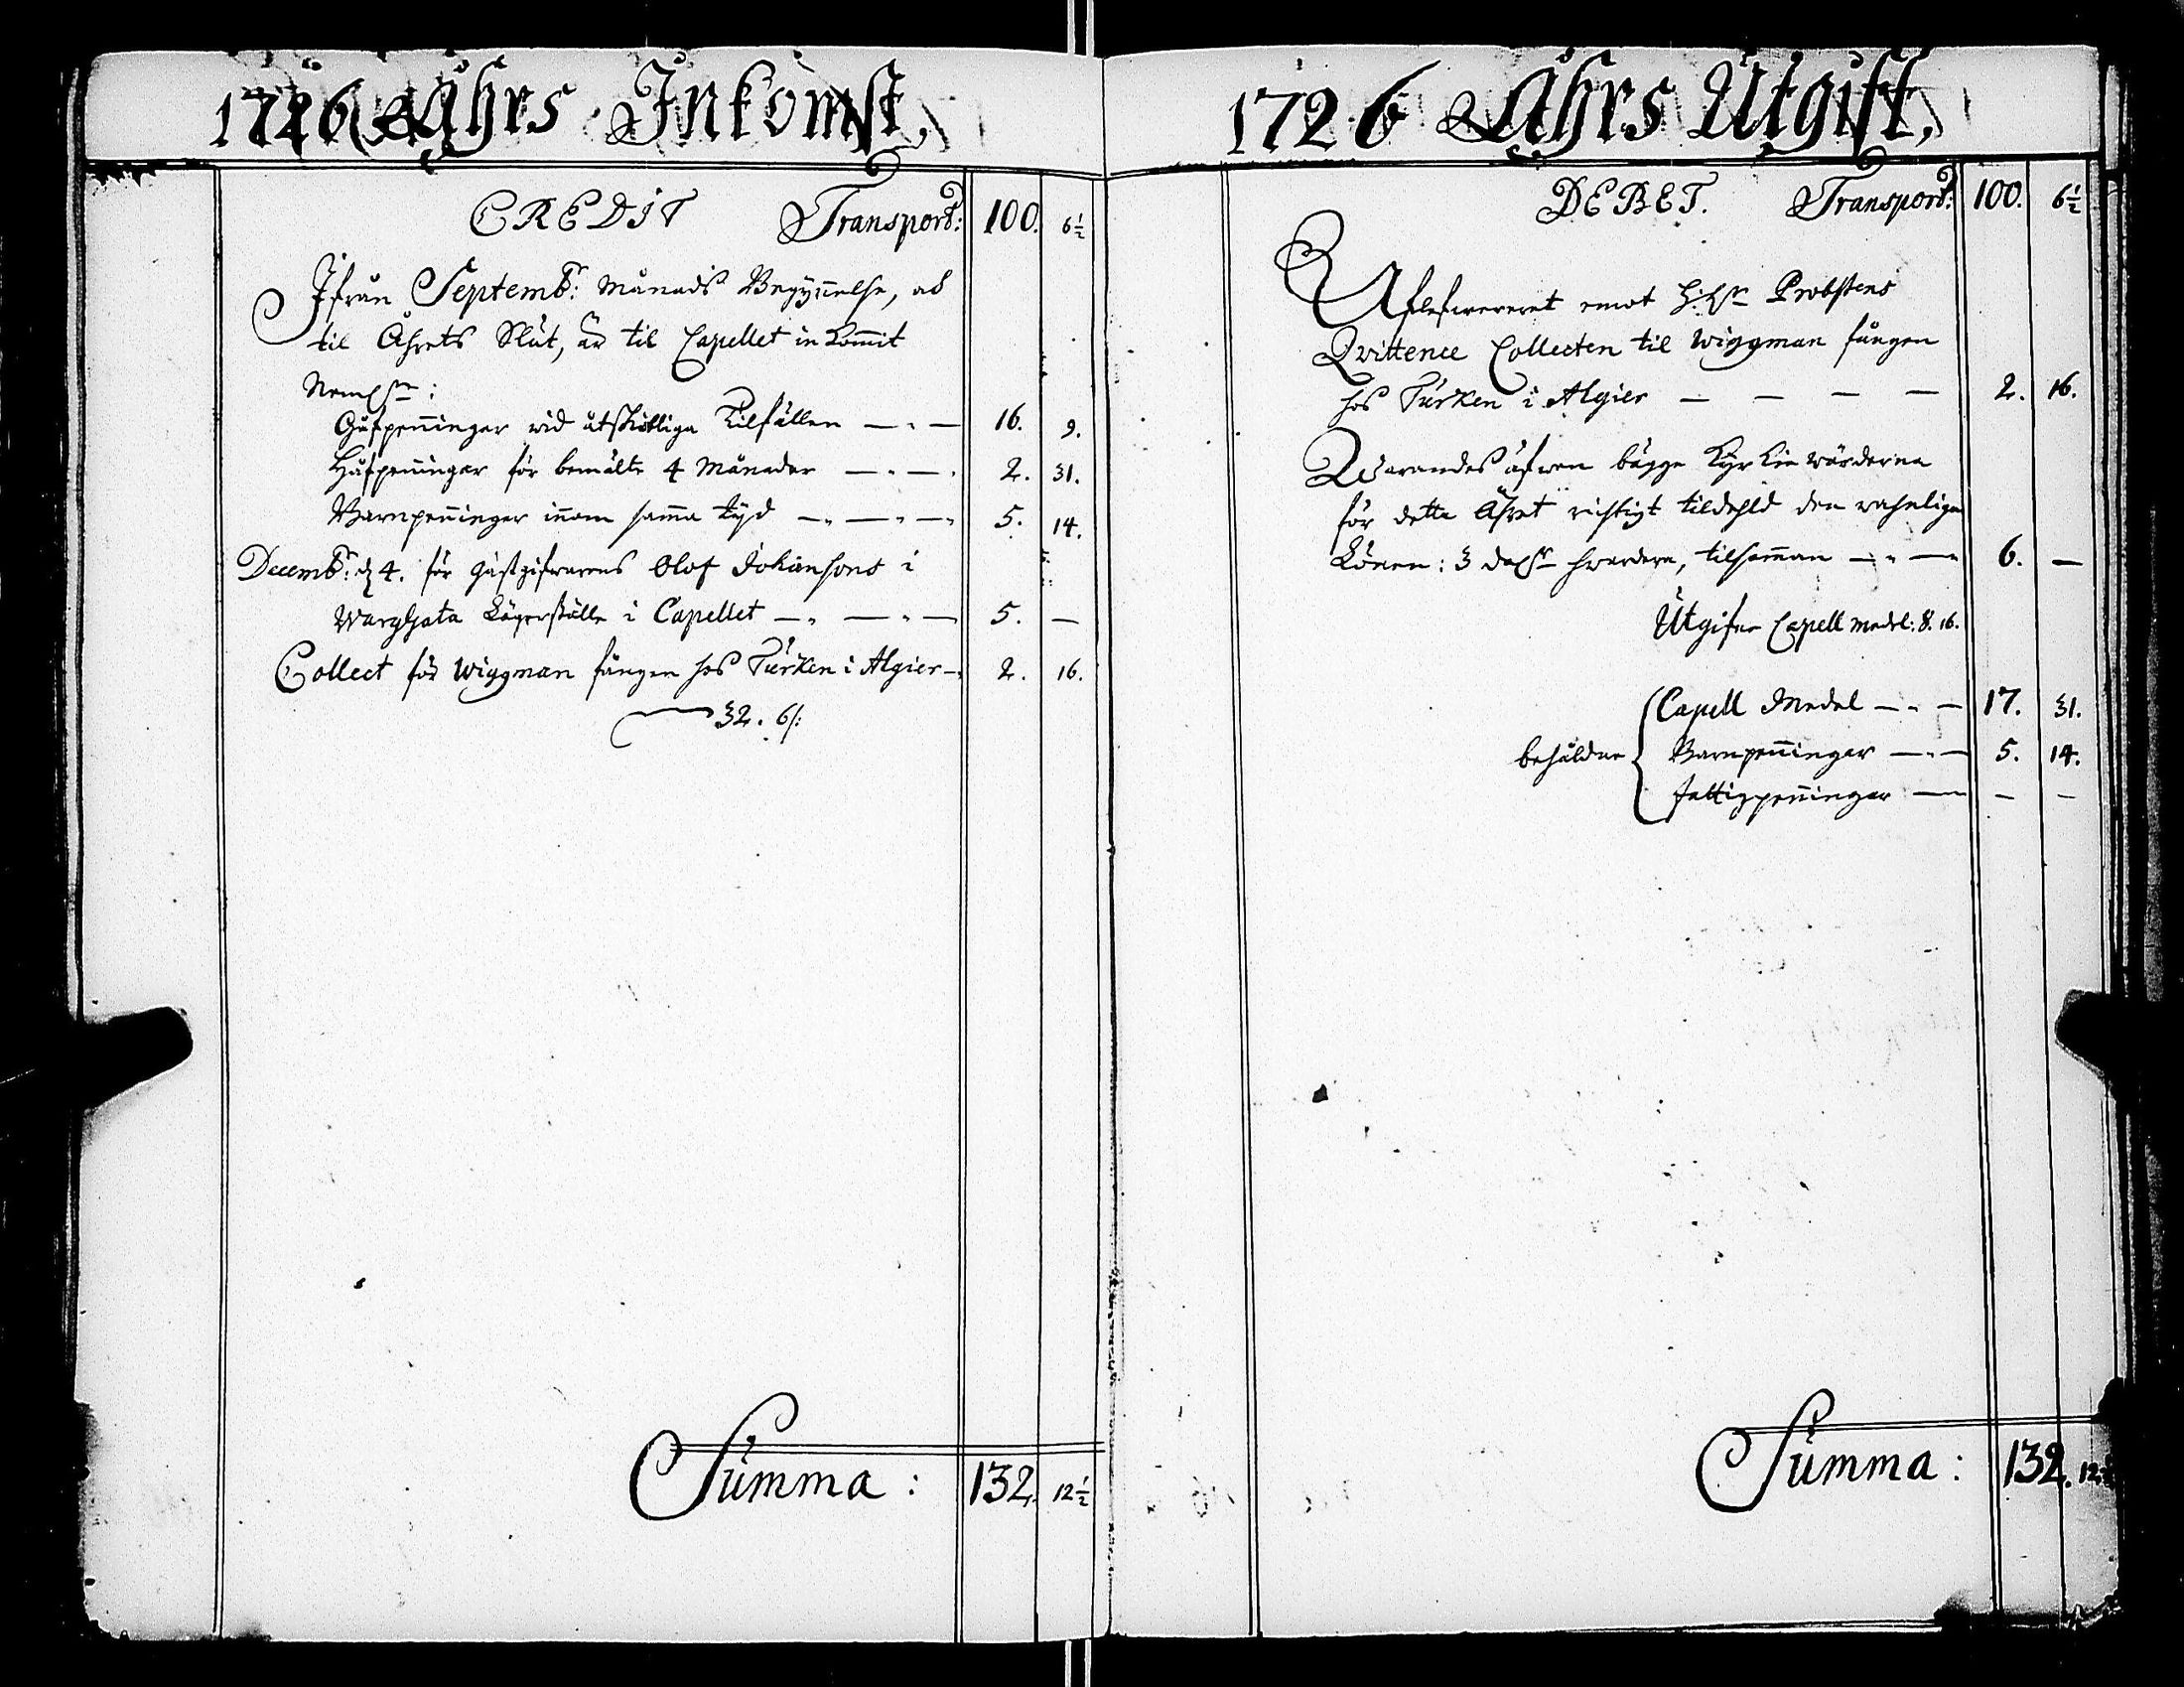 1726 Åhrs Inkomst,
CREDIT Transport: 100. 6½
Ifrån Septembr: Månads Begynnelse, ad
til Åhrets Slut, är til Capellet inkom̅it
Neml:
Gåfpen̅ingar wid åtskilliga Tilfällen 16. 9.
Håfpen̅ingar för bemälte 4 Månader 2. 31.
Barnpen̅ingar in̅om sam̅a tyd 5. 14.
Decembr: d. 4. för gästgifwarens Olof Johansons i
Warghata Lägerställe i Capellet 5. —
Collect för Wiggman fången hos Turken i Algier 2. 16.
32. 6/:
Summa: 132. 12½
1726 Åhrs Utgift,
DEBET. Transport: 100. 6½
Aflefwereret emot Probstens
Qvittence Collecten til Wiggman fången
hos Turken i Algier — — — — 2. 16.
Warandes äfwen bägge Kyrkiewärderna
för dette Åhret richtigt tildehld den wahnliga
Lönen: 3 dahlr hwardera, tilsam̅an 6. —
Utgifne Capell medel: 8. 16.
Capell Medel 17. 31.
behåldne Barnpen̅ingar 5. 14.
fattigpen̅ingar — —
Summa: 132. 12½